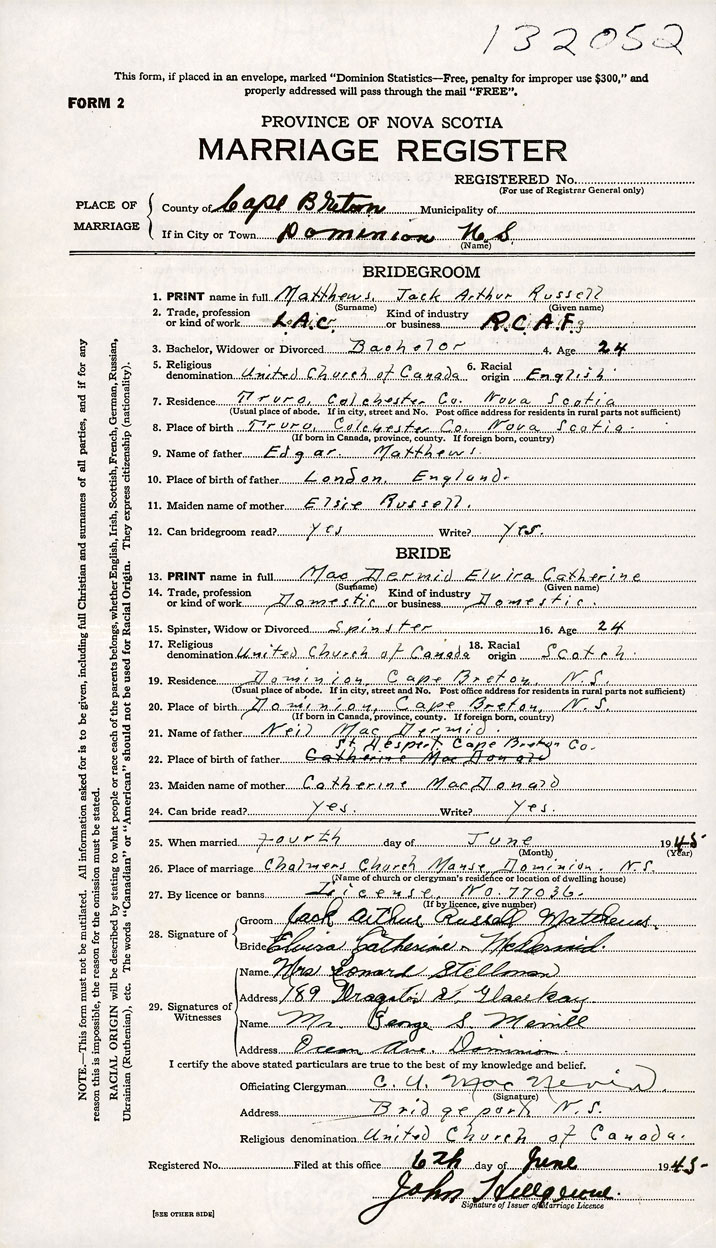 132052
This form, if placed in an envelope, marked “Dominion Statistics—Free, penalty for improper use $300,” and
properly addressed will pass through the mail “FREE”.
FORM 2
PROVINCE OF NOVA SCOTIA
MARRIAGE REGISTER
REGISTERED No.
(For use of Registrar General only)
PLACE OF MARRIAGE
County of Cape Breton Municipality of
If in City or Town Dominion N.S.
(Name)
BRIDEGROOM
1. PRINT name in full Matthews. Jack Arthur Russell
(Surname) (Given name)
2. Trade, profession or kind of work L.A.C. Kind of industry or business R.C.A.F.
3. Bachelor, Widower or Divorced Bachelor 4. Age 24
5. Religious denomination United Church of Canada 6. Racial origin English
7. Residence Truro, Colchester Co. Nova Scotia
(Usual place of abode. If in city, street and No. Post office address for residents in rural parts not sufficient)
8. Place of birth Truro, Colchester Co. Nova Scotia.
(If born in Canada, province, county. If foreign born, country)
9. Name of father Edgar. Matthews.
10. Place of birth of father London, England.
11. Maiden name of mother Elsie Russell.
12. Can bridegroom read? yes Write? yes.
BRIDE
13. PRINT name in full Mac Dermid Elvira Catherine
(Surname) (Given name)
14. Trade, profession or kind of work Domestic Kind of industry or business Domestic.
15. Spinster, Widow or Divorced Spinster 16. Age 24
17. Religious denomination United Church of Canada 18. Racial origin Scotch.
19. Residence Dominion, Cape Breton, N.S.
(Usual place of abode. If in city, street and No. Post office address for residents in rural parts not sufficient)
20. Place of birth Dominion, Cape Breton, N.S.
(If born in Canada, province, county. If foreign born, country)
21. Name of father Neil Mac Dermid.
St. Cape Breton Co.
22. Place of birth of father Catherine Mac Donald
23. Maiden name of mother Catherine MacDonald
24. Can bride read? yes. Write? yes.
25. When married Fourth day of June 1945
(Month) (Year)
26. Place of marriage Chalmers Church Manse, Dominion. N.S.
(Name of church or clergyman's residence or location of dwelling house)
27. By licence or banns License. No. 77036.
(If by licence, give number)
28. Signature of
Groom Jack Arthur Russell Matthews.
Bride Elvira Catherine McDermid.
29. Signatures of Witnesses
Name Mrs Leonard
Address 189 St. Glace Bay
Name Mr. George S. Merrill
Address Ocean Ave. Dominion.
I certify the above stated particulars are true to the best of my knowledge and belief.
Officiating Clergyman C. U. Mac Nevin
(Signature)
Address Bridgeport N.S.
Religious denomination United Church of Canada.
Registered No. Filed at this office 6th day of June 1945-
John
Signature of Issuer of Marriage Licence
[SEE OTHER SIDE]
NOTE.—This form must not be mutilated. All information asked for is to be given, including full Christian and surnames of all parties, and if for any
reason this is impossible, the reason for the omission must be stated.
RACIAL ORIGIN will be described by stating to what people or race each of the parents belongs, whether English, Irish, Scottish, French, German, Russian,
Ukrainian (Ruthenian), etc. The words “Canadian” or “American” should not be used for Racial Origin. They express citizenship (nationality).